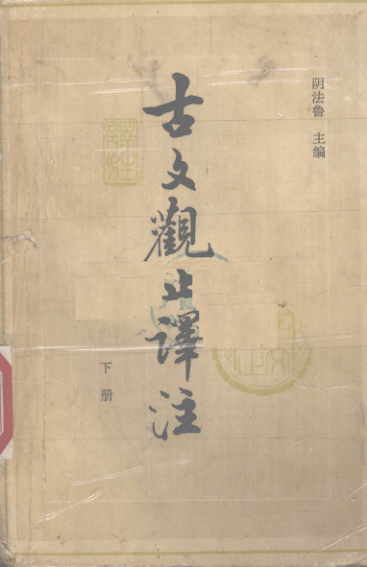 阴法鲁 主编
古文觀止譯注
下册